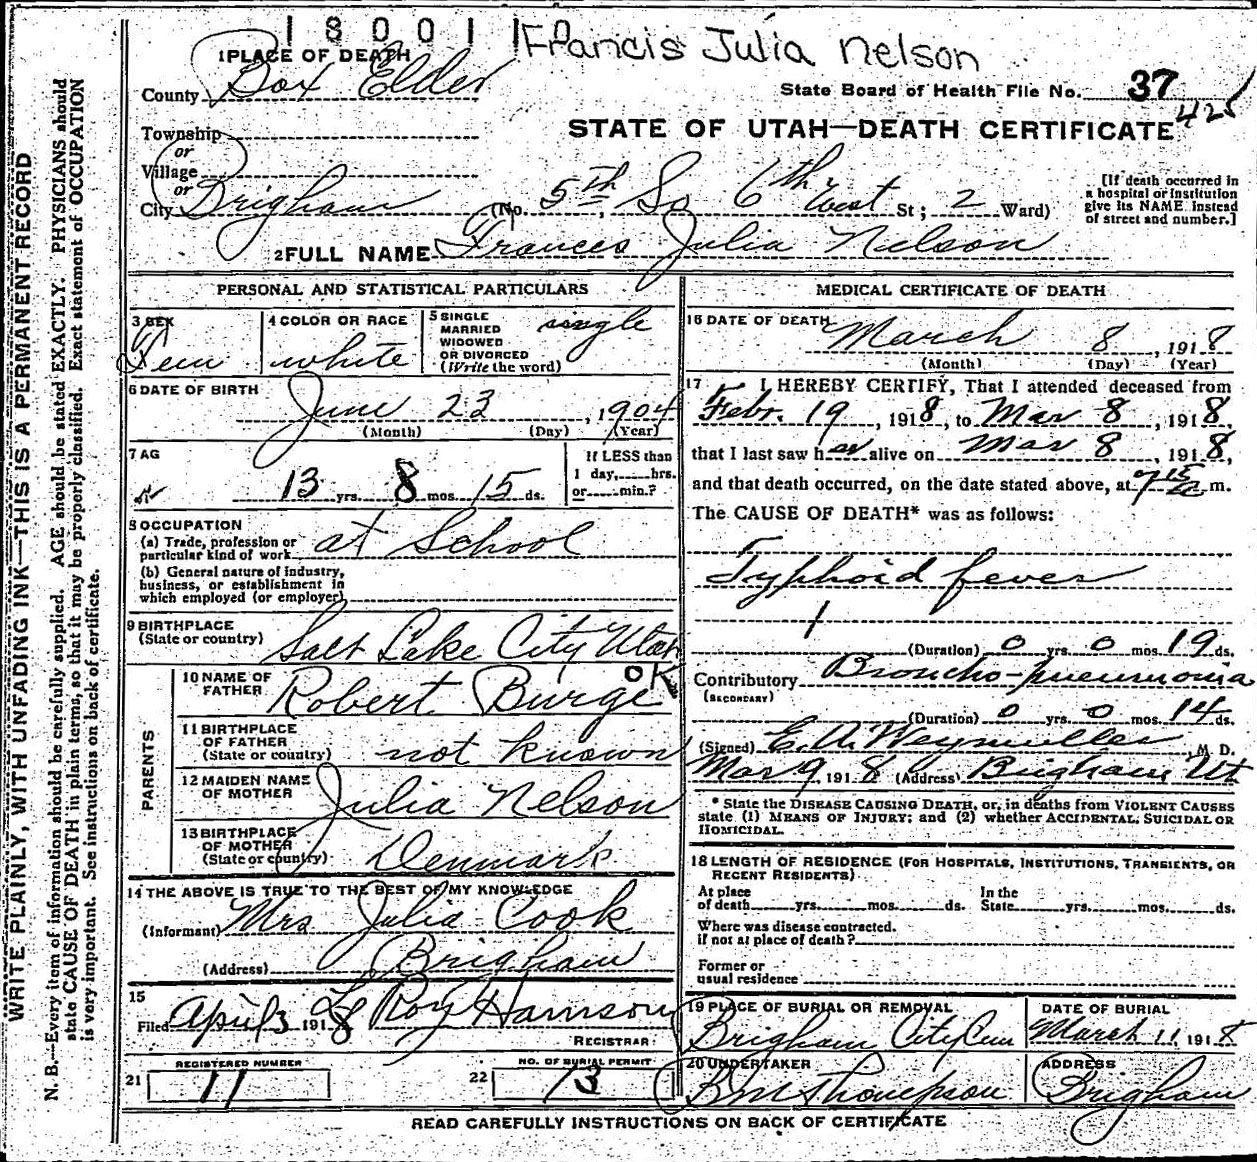 1 8 0 0 1 1 0
Francis Julia Nelson
1 PLACE OF DEATH
County Box Elder
State Board of Health File No. 37
425
Township
or
Village
or
STATE OF UTAH—DEATH CERTIFICATE
City Brigham (No. 5th So 6th West St; 2 Ward)
[If death occurred in
a hospital or institution
give its NAME instead
of street and number.]
2 FULL NAME Frances Julia Nelson
PERSONAL AND STATISTICAL PARTICULARS
3 SEX
Fem
4 COLOR OR RACE
white
5 SINGLE
MARRIED
WIDOWED
OR DIVORCED
(Write the word)
single
6 DATE OF BIRTH
June 23, 1904
(Month) (Day) (Year)
7 AG
13 yrs. 8 mos. 15 ds.
If LESS than
1 day, hrs.
or min.?
8 OCCUPATION
(a) Trade, profession or
particular kind of work at School
(b) General nature of industry,
business, or establishment in
which employed (or employer)
9 BIRTHPLACE
(State or country) Salt Lake City Utah
PARENTS
10 NAME OF
FATHER Robert Burge OK
11 BIRTHPLACE
OF FATHER
(State or country) not known
12 MAIDEN NAME
OF MOTHER Julia Nelson
13 BIRTHPLACE
OF MOTHER
(State or country) Denmark
14 THE ABOVE IS TRUE TO THE BEST OF MY KNOWLEDGE
(Informant) Mrs Julia Cook
(Address) Brigham
15
Filed April 3 1918 Le Roy Harrison
REGISTRAR
REGISTERED NUMBER
21 11
NO. OF BURIAL PERMIT
22 13
MEDICAL CERTIFICATE OF DEATH
16 DATE OF DEATH
March 8, 1918
(Month) (Day) (Year)
17 I HEREBY CERTIFY, That I attended deceased from
Febr. 19, 1918, to Mar 8, 1918,
that I last saw her alive on Mar 8, 1918,
and that death occurred, on the date stated above, at 7 15 a m.
The CAUSE OF DEATH* was as follows:
Typhoid fever
1
(Duration) 0 yrs. 0 mos. 19 ds.
Contributory Broncho-pneumonia
(SECONDARY)
(Duration) 0 yrs. 0 mos. 14 ds.
(Signed) E. A. Weymuller, M. D.
Mar 9, 1918 (Address) Brigham Ut
* State the DISEASE CAUSING DEATH, or, in deaths from VIOLENT CAUSES
state (1) MEANS OF INJURY; and (2) whether ACCIDENTAL, SUICIDAL OR
HOMICIDAL.
18 LENGTH OF RESIDENCE (FOR HOSPITALS, INSTITUTIONS, TRANSIENTS, OR
RECENT RESIDENTS)
At place
of death yrs. mos. ds.
In the
State yrs. mos. ds.
Where was disease contracted.
if not at place of death?
Former or
usual residence
19 PLACE OF BURIAL OR REMOVAL
Brigham City Cem
DATE OF BURIAL
March 11 1918
20 UNDERTAKER
B M Thompson
ADDRESS
Brigham
READ CAREFULLY INSTRUCTIONS ON BACK OF CERTIFICATE
WRITE PLAINLY, WITH UNFADING INK—THIS IS A PERMANENT RECORD
N. B.—Every item of information should be carefully supplied. AGE should be stated EXACTLY. PHYSICIANS should
state CAUSE OF DEATH in plain terms, so that it may be properly classified. Exact statement of OCCUPATION
is very important. See instructions on back of certificate.